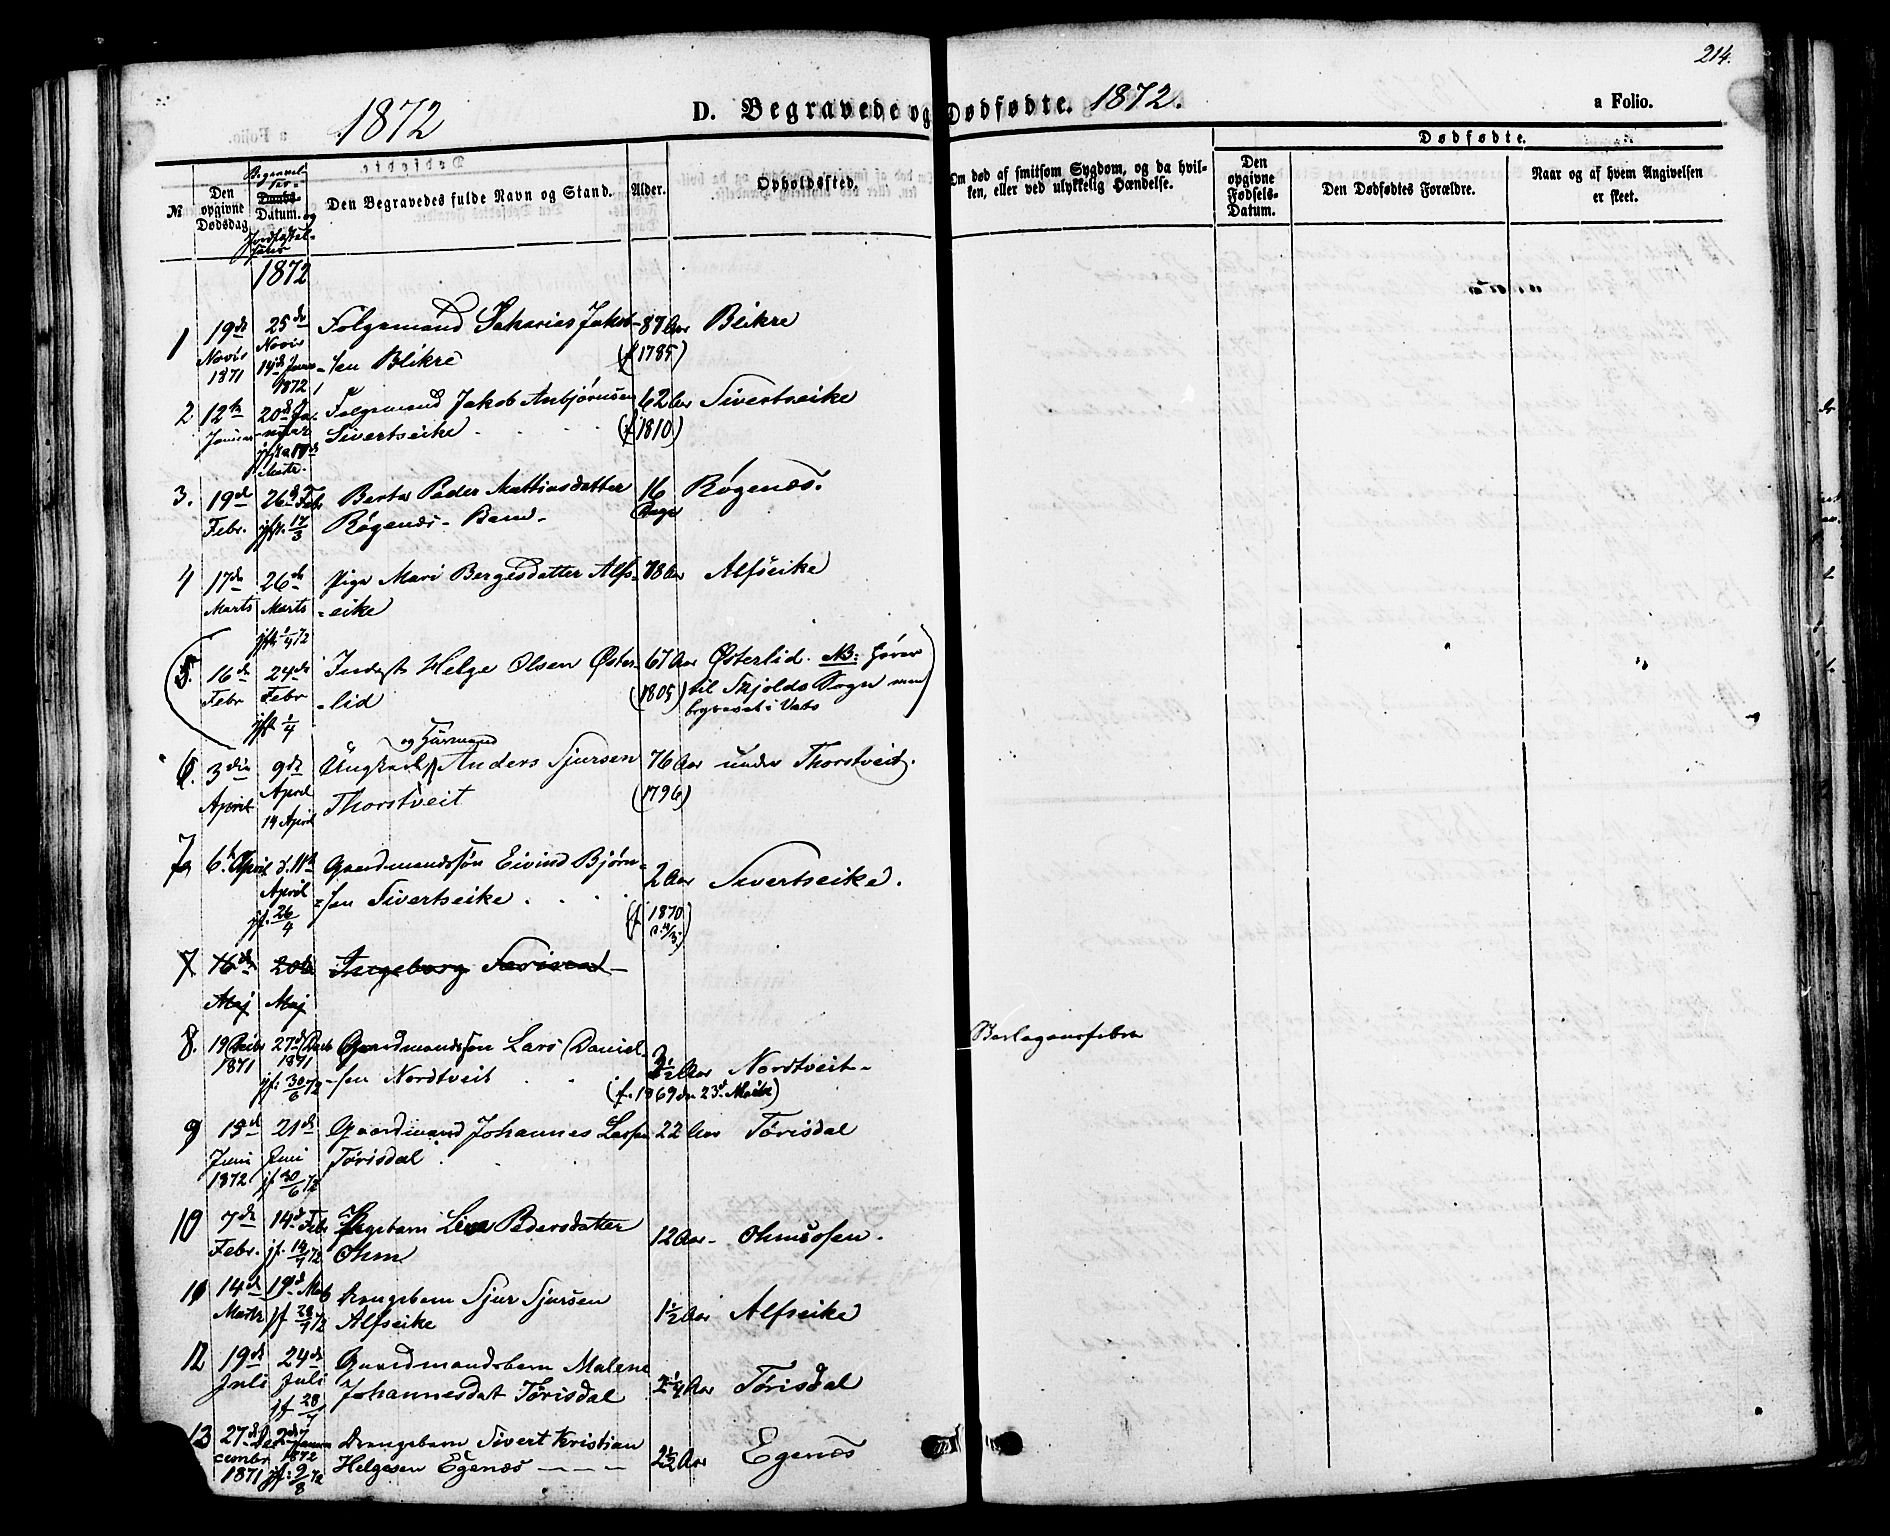 214.
1872 D. Begravede og Dødfødte. 1872. a Folio.
№
Den opgivne Dødsdag
Begravelses-Datum. og Jordfæstelse
Den Begravedes fulde Navn og Stand.
Alder.
Opholdssted.
Om død af smitsom Sygdom, og da hvilken, eller ved ulykkelig Hændelse.
Dødfødte.
Den opgivne Fødsels-Datum.
Den Dødfødtes Forældre.
Naar og af hvem Angivelsen er skeet.
1872
1 19de 25de Folgemand Sakarias Jakob- 87 Aar Blikre
Novbr Novbr
1871 14de -sen Blikre (f 1785)
1872
2 12te 20de Ja- Folgemand Jakob Anbjørnsen 62 Aar Sivertseike
Januar -nuar Sivertseike (f 1810)
3. 19de 26de Febr Berta Peder Mattiasdatter 16 Røgenæs.
Febr. jfk. 17/3 Røgenæs - Barn - Dage
4 17de 26de Pige Mari Bergesdatter Alfs- 78 Aar Alfseike
Marts Marts -eike
jfk 1/4 72
5. 16de 24de Inderst Helge Olsen Øster- 67 Aar Østerlid. NB: hører
Febr Febr -lid (1805) til Skjolds Sogn men
jfk 1/4 begravet i Vats
og Huusmand
6. 3die 9de Ungkarl Anders Sjursen 76 Aar under Thorstveit.
April April Thorstveit (1796)
14 April
7a 6te April d. 11te Gaardmandssøn Eivind Bjørn- 2 Aar Sivertseike.
April -sen Sivertseike (f 1870
jf. 26/4
7 16de 20de Ingeborg
Maj Maj
8. 19 Decbr 27de Decb Gaardmandssøn Lars Daniel- 2½ Aar Nordtveit- Barlagensfeber
1871 1871 -sen Nordtveit (f. 1869 den 23de Maits)
jf: 30/6 72
9 15de 21de Gaardmand Johannes Larsen 22 Aar Tørisdal
Juni Juni Tørisdal
1872 jf 30/6 72
10 7de 14de Febr Pigebarn Lina Pedersdatter 12 Aar- Ohmsosen.
Febr. jf. 14/7 72 Ohm
11 14de 19de Drengebarn Sjur Sjursen 1½ Aar Alfseike
Marts jf 28/7 72 Alfseike
12 19de 24de Gaardmandsbarn Malene 2¼ Aar Tørisdal
Juli Juli Johannesdat Tørisdal
jf 28/7
13 27de De- 2de Drengebarn Sivert Kristian 2½ Aar Egenæs
cember 1872 Helgesen Egenæs
1871 jf: 9/8 72